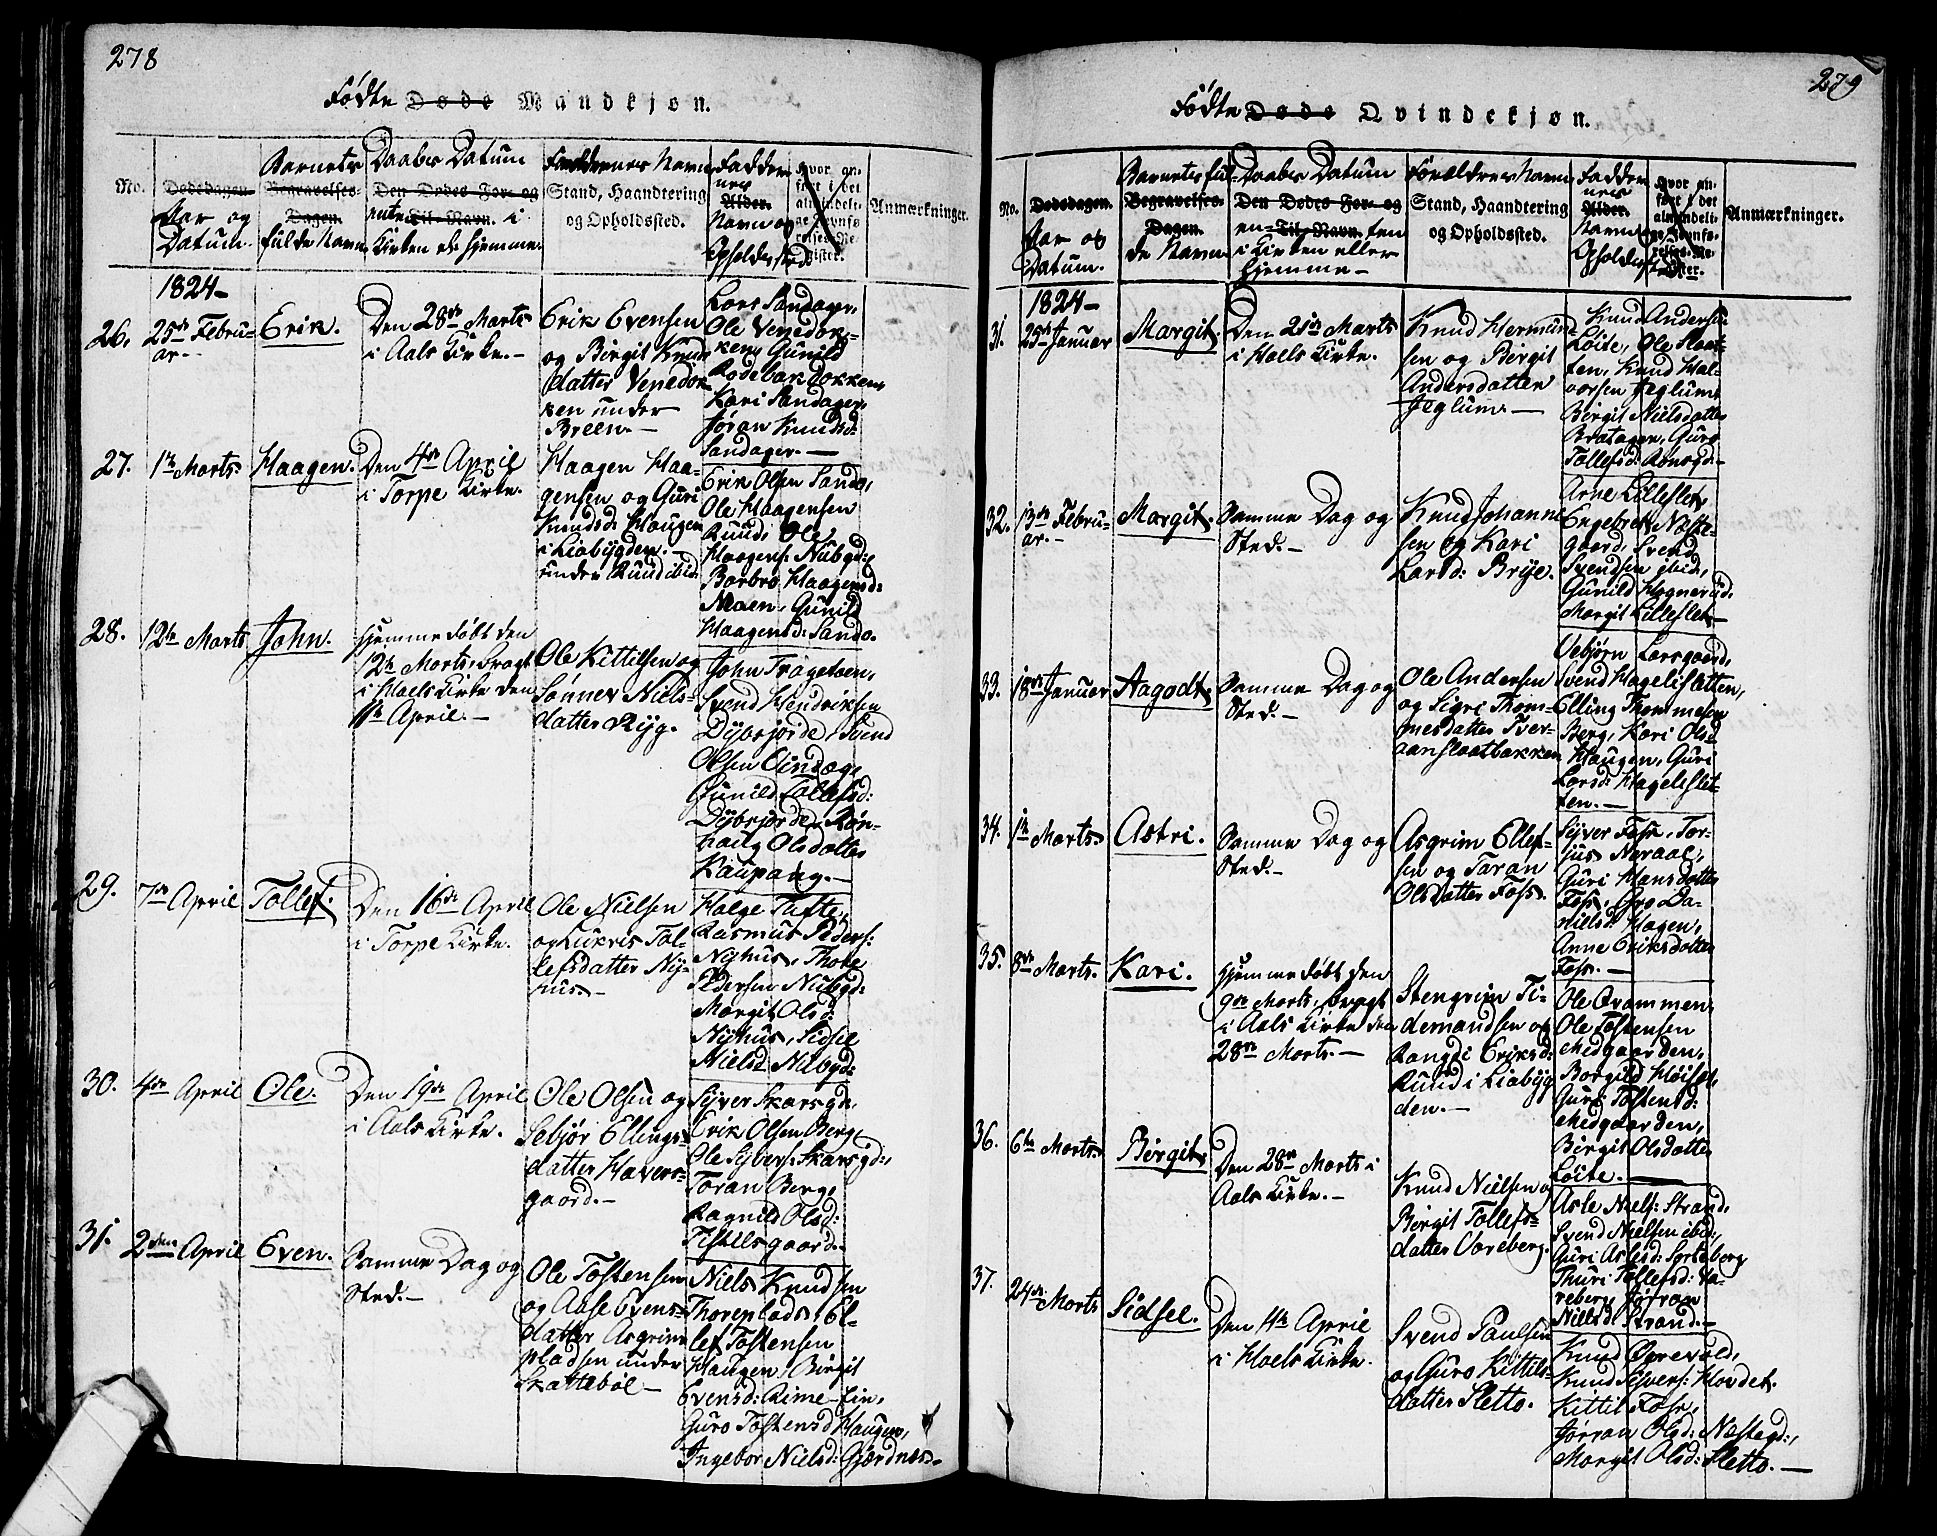 278
Fødte Døde Mandkjøn.
No.
Dødsdagen.
Aar og
Datum.
Barnets
Begravelses-
Dagen.
fulde Navn
Daabes Datum
Den Dødes For- og
enten Til-Navn. i
Kirken el: hjemme.
Forældrenes Navn
Stand, Haandtering
og Opholdssted.
Fadder
nes
Alder.
Navn og
Opholdssted
Hvor an-
ført i det
almindeli-
ge Jevnfø-
relses-Re-
gister.
Anmærkninger.
1824-
26.
25de Febru-
ar.-
Erik.
Den 28de Marts
i Aals Kirke.-
Erik Evensen
og Birgit Knud
datter Venedok
ken under
Breen.-
Lars Sandager,
Ole Venedok-
ken, Gunild
Rodebakdokken,
Kari Sandager,
Jøran Knudsd:
Sandager.-
27.
1te Marts
Haagen.
Den 4de April
i Torpe Kirke.
Haagen Haa-
gensen og Guri
Knudsd: Haugen
i Liabygden.-
under Ruud ibid.
Erik Olsen Sando,
Ole Haagensen
Ruud, Ole
Haagens: Nubgd:,
Barbro Haagensd:
Moen, Gunild
Haagensd: Sando.
28.
12te Marts
John.
hjemme døbt den
12te Marts, bragt
i Hoels Kirke den
11te April.-
Ole Kittilsen og
Sønnev Niels-
datter Ryg.
John Trageton,
Svend Hendriksen
Dybsjorde, Svend
Olsen Oindag,
Gunild Tollefsd:
Dybsjorde, Røn-
haug Olsdatter
Kaupang.-
29.
7de April
Tollef.
Den 16de April
i Torpe Kirke.
Ole Nielsen
og Lukris Tol-
lefsdatter Ny-
hus.-
Halge Tufte,
Rasmus Peders:
Nyhus, Thore
Pedersen Nubgd:
Margit Olsd:
Nyhus, Sidsel
Nielsd: Nubgd:
30.
4de April
Ole.
Den 19de April
i Aals Kirke.
Ole Olsen og
Sebjør Ellings-
datter Havers-
gaard.-
Syver Skarsgd,
Erik Olsen Berg,
Ole Syvers: Skarsgd:,
Toran Berg,
Ragnild Olsd:
Tistelsgaard.
31.
2den April
Even.
Samme Dag og
Sted.-
Ole Tostensen
og Aase Evens-
datter Asgrim
pladsen under
Skattebøl-
Niels Knudsen
Thoreplads, El-
lef Tostensen
Haugen, Birgit
Evensd: Rime-Ein,
Guro Tostensd Haugen,
Ingebor Nielsd: Gjerdnesd-
279
Fødte Døde Qvindekjøn.
No.
Dødsdagen.
Aar og
Datum.
Barnets ful-
Begravelses-
Dagen.
de Navn
Daabes Datum
Den Dødes For- og
en- Til-Navn. ten
i Kirken eller
hjemme-
Forældrenes Navn
Stand, Haandtering
og Opholdssted.
Fadder
nes
Alder.
Navn
Opholdssted
Hvor an-
ført i det
almindeli-
ge Jevnfø-
relses-Re-
gister.
Anmærkninger.
1824-
31.
25de Januar
Margit.
Den 21de Marts
i Hoels Kirke.
Knud Hermun-
sen og Birgit
Andersdatter
Jeglum.-
Knud Andersen
Løite, Ole Slaat-
ten, Knud Hal-
vorsen Jeglum
Birgit Nielsdatter
Bratagen, Guro
Tollefsd: Aansgd-
32.
13de Febru-
ar.-
Margit.
Samme Dag og
Sted.-
Knud Johanne
sen og Kari
Larsd: Brye.
Arne Lilleslet,
Engebret Neste-
gaard, Svend
Svendsen ibid,
Gunild Hognerud,
Margit Lilleslet-
33.
18de Januar
Aagodt.
Samme Dag og
Sted.-
Ole Andersen
og Sigri Thom-
mesdatter Tver-
aanslaatbakken
Vebjørn Larsgaard,
Svend Hagelisletten,
Elling Thommesen
Berg, Kari Olsd
Haugen, Guri
Larsd: Hagelislet-
ten.-
34.
1te Marts.
Astri.
Samme Dag og
Sted.-
Asgrim Ellef-
sen og Taran
Olsdatter Foss.
Syver Foss, Tor-
jus Noraal,
Guri Hansdatter
Foss, Gro Da-
nielsd: Hagen,
Anne Eriksdatter
Foss.-
35.
8de Marts.
Kari.
hjemme døbt den
9de Marts, bragt
i Aals Kirke den
28de Marts.-
Stengrim Ti-
demandsen og
Rangdi Eriksd:
Ruud i Liabyg
den.-
Ole Qvammen,
Ole Tostensen
Medgaarden,
Borgild Høiset,
Guri Tostensd:
Medgaarden,
Birgit Olsdatter
Løite.-
36.
6te Marts.
Birgit.
Den 28de Marts i
Aals Kirke.-
Knud Nielsen og
Birgit Tollefs-
datter Voreberg.
Asle Niels: Strand,
Svend Nielsen ibd:,
Guri Aslesd: Sorteberg
Thuri Tollefsd: Vo-
reberg, Jøran
Nielsd: Strand.-
37.
24de Marts
Sidsel.
Den 11te April
i Hoels Kirke.
Svend Paulsen
og Guro Kittils-
datter Sletto.
Knud Ørevold,
Knud Syvers: Hovdet.
Kittil Foss,
Jørran Olsd: Nestegd:,
Margit Olsd: Sletto.-